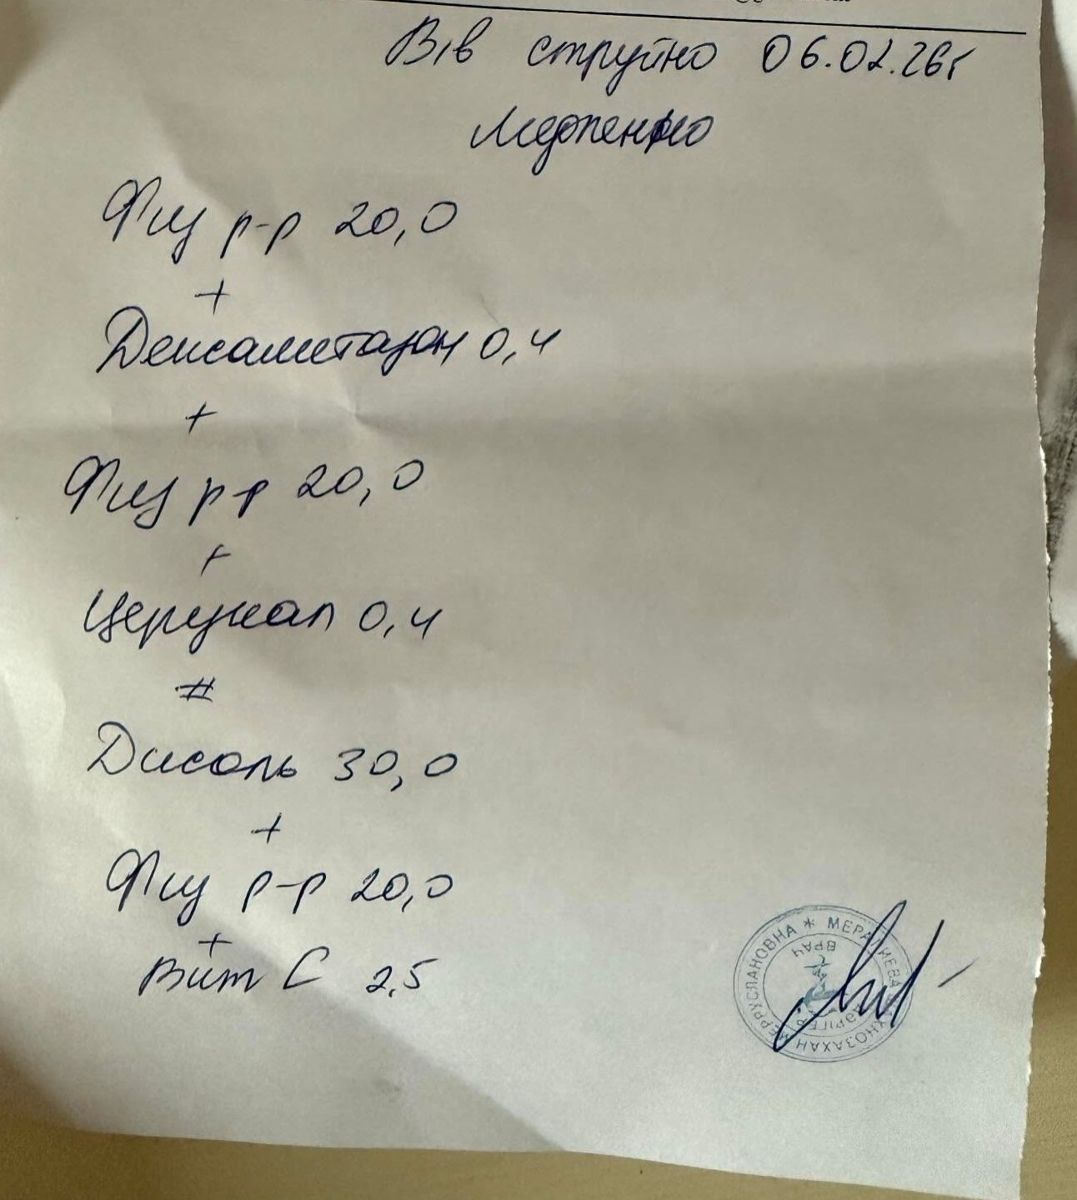 В/в струйно 06.02.26г
Медленно
Физ р-р 20,0
+
Дексаметазон 0,4
+
Физ р-р 20,0
+
Церукал 0,4
#
Дисоль 30,0
+
Физ р-р 20,0
+
Вит С 2,5
МЕРУСЛАНОВНА * 
ВРАЧ